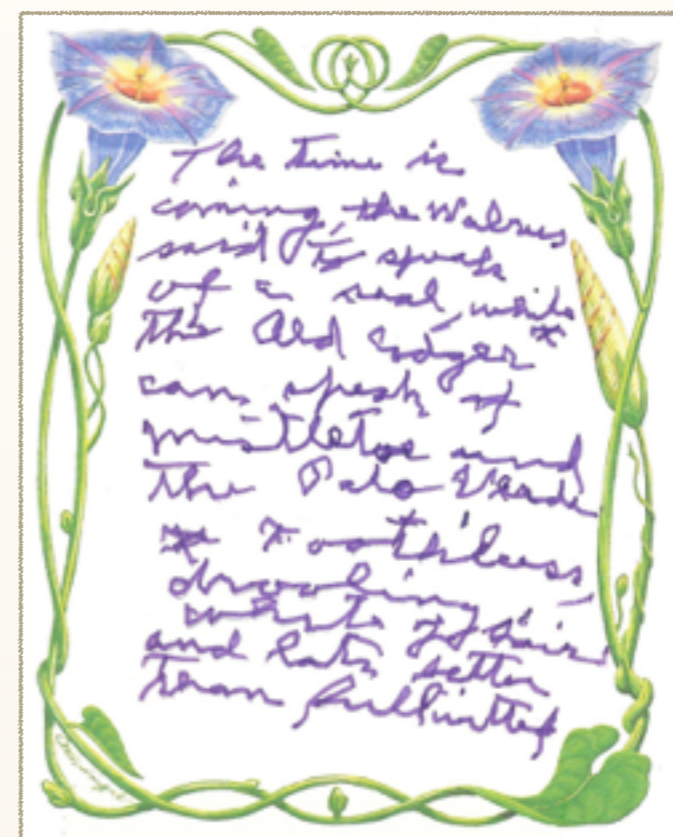 The time is
coming, the Walrus
said, to speak
of a seal, while
the Old Codger *
can speak of
mistletoe and
the Palo Verde
* Toothless,
drooling,
white
and
than